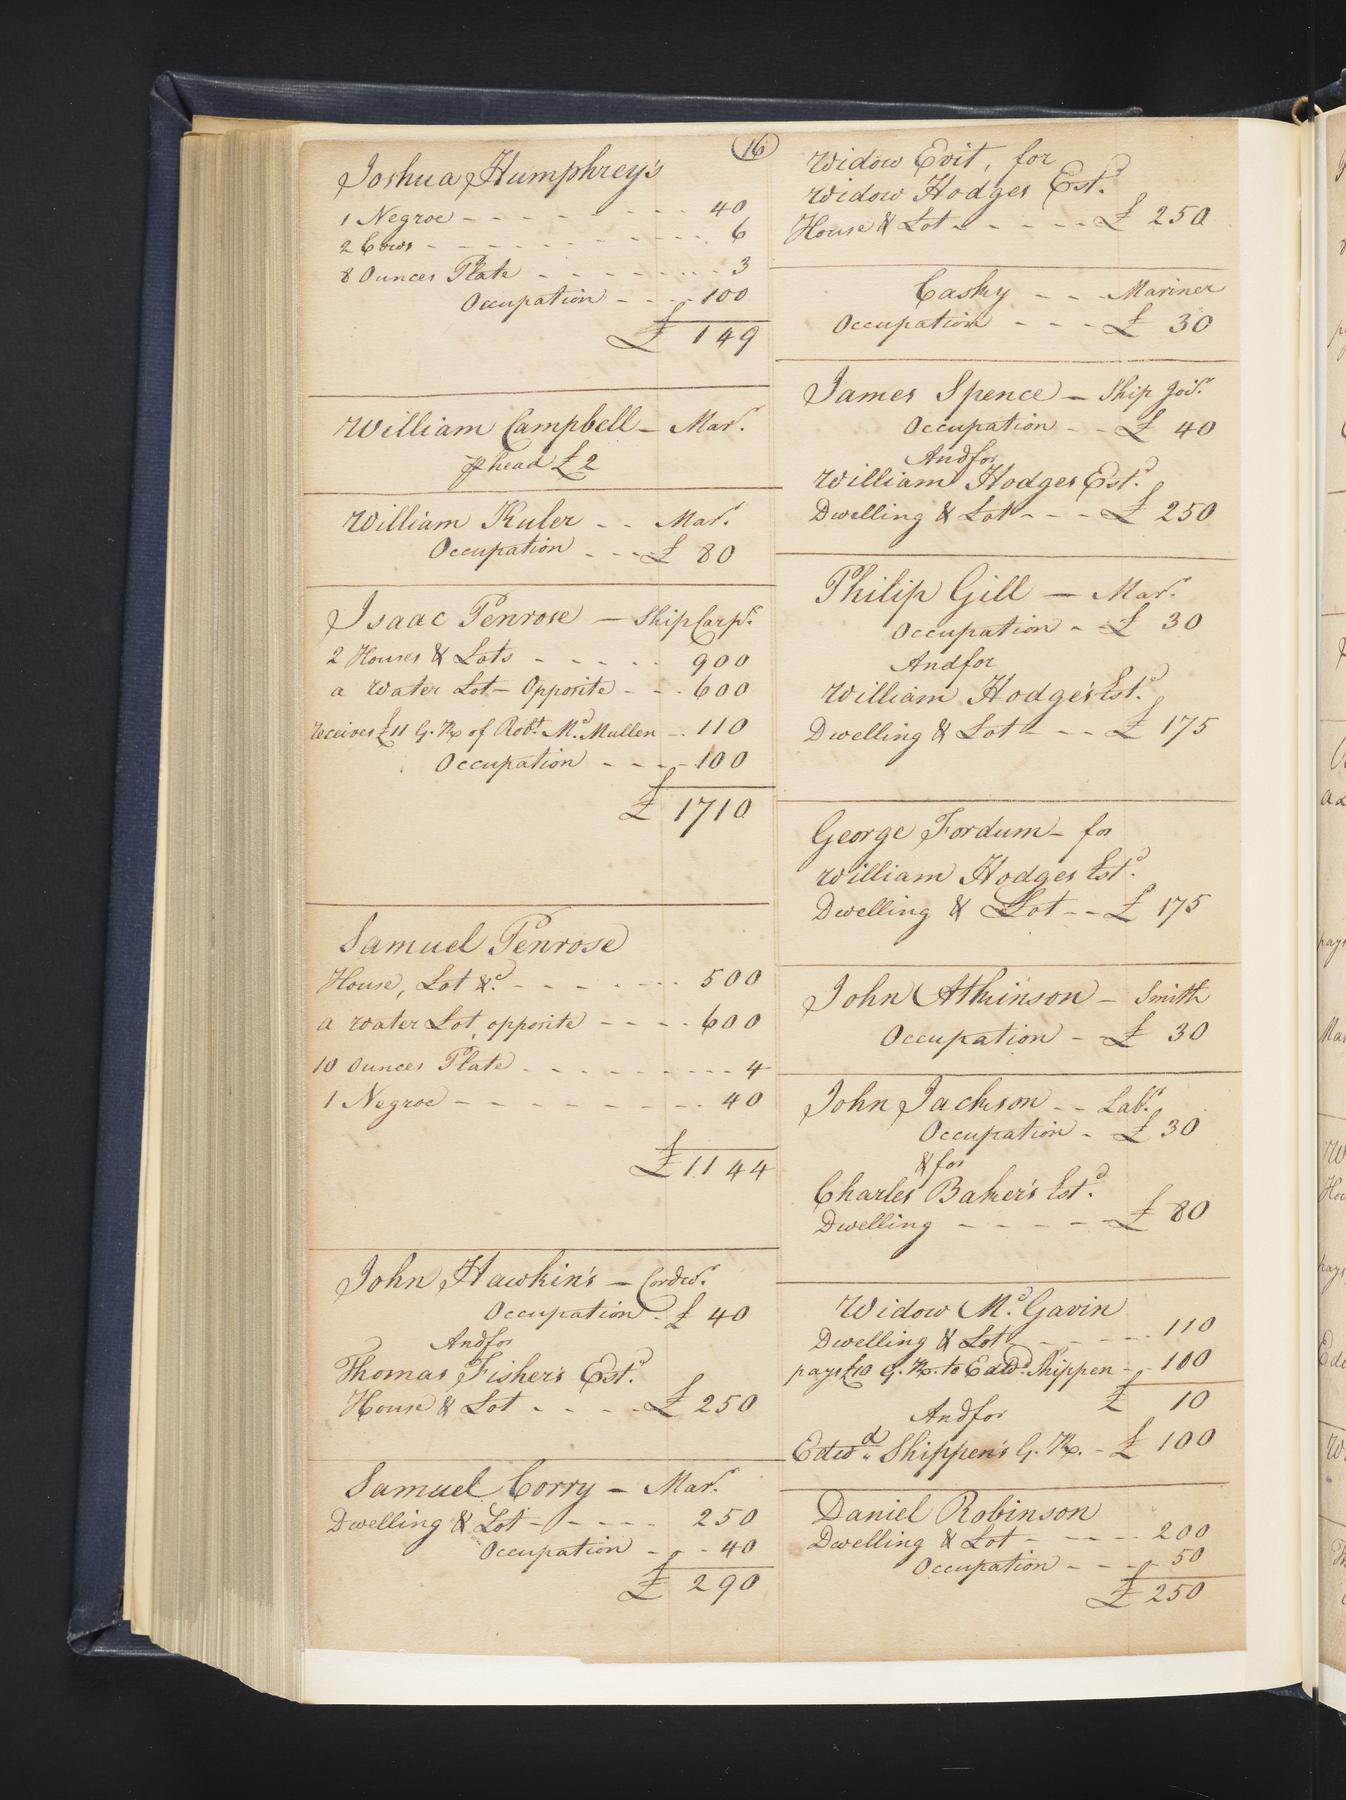 16
Joshua Humphrey's
1 Negroe - - - - - - - - 40
2 Cows - - - - - - - - - - 6
8 Ounces Plate - - - - - - - 3
Occupation - - - - 100
£ 149
William Campbell - Marr.
⅌ head £2
William Kuler - - Marr.
Occupation - - - £ 80
Isaac Penrose - Ship Carpr.
2 Houses & Lots - - - - - 900
a Water Lot - Opposite - - - 600
receives £11 G. R. of Robt. Mc.Mullen - - 110
Occupation - - - - 100
£ 1710
Samuel Penrose
House, Lot &c. - - - - - - - 500
a Water Lot, opposite - - - - 600
10 Ounces Plate - - - - - - - - - 4
1 Negroe - - - - - - - - 40
£ 1144
John Hawkin's - Cordwr.
Occupation - £ 40
And for
Thomas Fisher's Estd.
House & Lot - - - - £ 250
Samuel Corry - Marr.
Dwelling & Lot - - - - - 250
Occupation - - - 40
£ 290
Widow Evit, for
Widow Hodges Estd.
House & Lot - - - - - £ 250
Casky - - - Mariner
Occupation - - - £ 30
James Spence - Ship Joir.
Occupation - - £ 40
And for
William Hodges Estd.
Dwelling & Lot - - - £ 250
Philip Gill - Marr.
Occupation - £ 30
And for
William Hodge's Estd.
Dwelling & Lot - - - £ 175
George Fordum - for
William Hodges Estd.
Dwelling & Lot - - £ 175
John Atkinson - Smith
Occupation - £ 30
John Jackson - - Labr.
Occupation - £ 30
& for
Charles Baker's Estd.
Dwelling - - - - - £ 80
Widow Mc.Gavin
Dwelling & Lot - - - - - 110
pays £10 G. R. to Edwd. Shippen - - 100
£ 10
And for
Edwd. Shippen's G. R. - £ 100
Daniel Robinson
Dwelling & Lot - - - - - 200
Occupation - - - - 50
£ 250